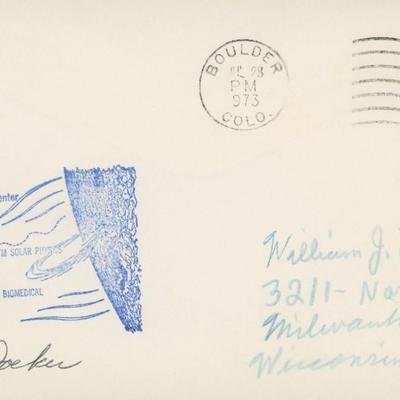 BOULDER
JUL 28
PM
1973
COLO.
enter
TM SOLAR PHYSICS
BIOMEDICAL
William J.
3211- No
Milwauk
Wisconsin